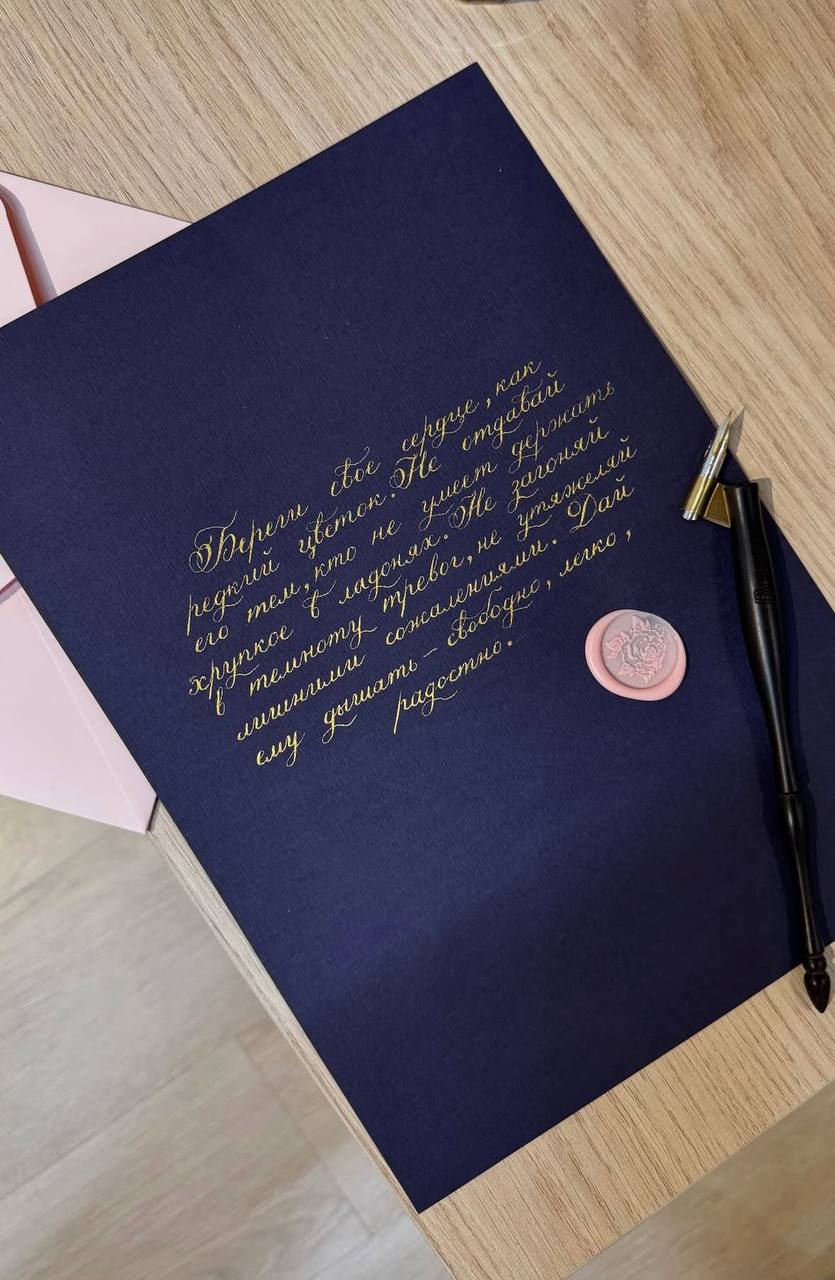 Береги свое сердце, как
редкий цветок. Не отдавай
его тем, кто не умеет держать
хрупкое в ладонях. Не загоняй
в темноту тревог, не утяжеляй
лишними сожалениями. Дай
ему дышать – свободно, легко,
радостно.